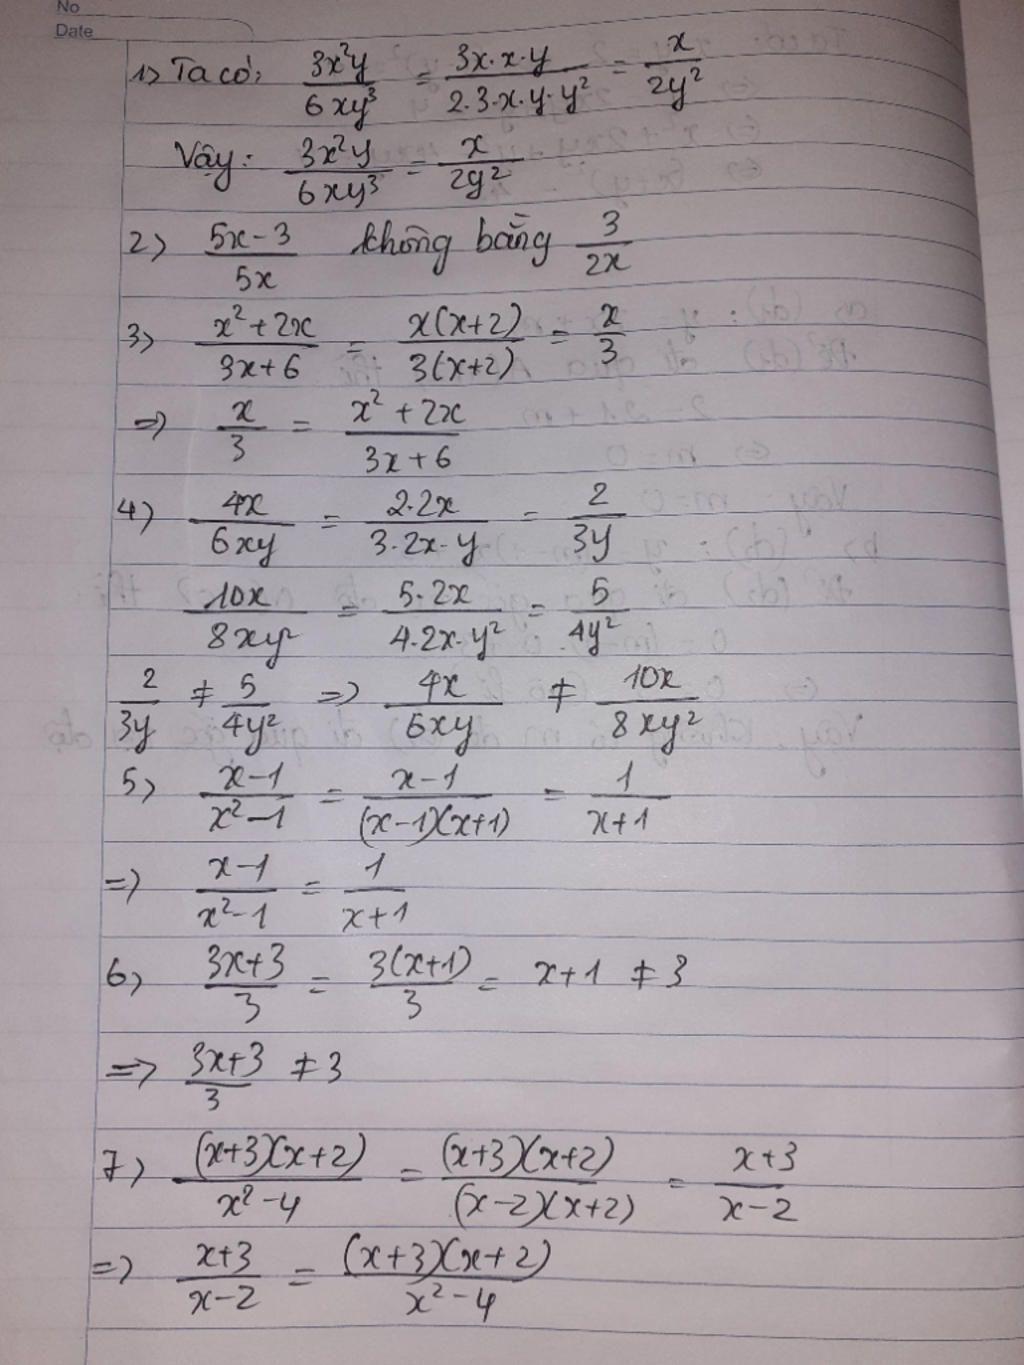 No
Date
1) Ta có: 3x²y/6xy³ = 3x·x·y/2·3·x·y·y² = x/2y²
Vậy: 3x²y/6xy³ = x/2y²
2) 5x-3/5x không bằng 3/2x
3) x²+2x/3x+6 = x(x+2)/3(x+2) = x/3
=> x/3 = x²+2x/3x+6
4) 4x/6xy = 2·2x/3·2x·y = 2/3y
10x/8xy² = 5·2x/4·2x·y² = 5/4y²
2/3y ≠ 5/4y² => 4x/6xy ≠ 10x/8xy²
5) x-1/x²-1 = x-1/(x-1)(x+1) = 1/x+1
=> x-1/x²-1 = 1/x+1
6) 3x+3/3 = 3(x+1)/3 = x+1 ≠ 3
=> 3x+3/3 ≠ 3
7) (x+3)(x+2)/x²-4 = (x+3)(x+2)/(x-2)(x+2) = x+3/x-2
=> x+3/x-2 = (x+3)(x+2)/x²-4